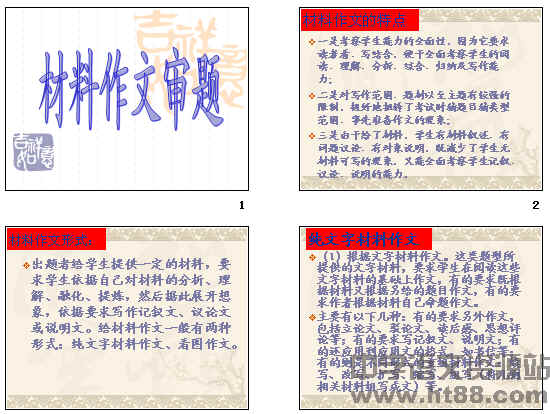 吉祥如意
材料作文审题
吉祥如意
1
材料作文的特点
一是考察学生能力的全面性，因为它要求
读者看、写结合，便于全面考察学生的阅
读、理解、分析、综合、归纳及写作能
力；
二是对写作范围、题材以至主题有较强的
限制，较好地扭转了考试时猜题目猜类型
范围、事先准备作文的现象；
三是由于给了材料，学生有材料叙述、有
问题议论、有对象说明，既减少了学生无
材料可写的现象，又能全面考察学生记叙、
议论、说明的能力。
2
材料作文形式：
出题者给学生提供一定的材料，要
求学生依据自己对材料的分析、理
解、融化、提炼，然后据此展开想
象，依据要求写作记叙文、议论文
或说明文。给材料作文一般有两种
形式：纯文字材料作文、看图作文。
纯文字材料作文
（1）根据文字材料作文。这类题型所
提供的文字材料，要求学生在阅读这些
文字材料的基础上作文，有的要求既根
据材料又根据另给的题目作文，有的要
求作者根据材料自己命题作文。
主要有以下几种：有的要求另外作文，
包括立论文、驳论文、读后感、思想评
论等；有的要求写记叙文、说明文；有
的还应用到应用文的格式，如书信等；
写、改写、扩写、
相关材料组写成文）等。
www.ht88.com